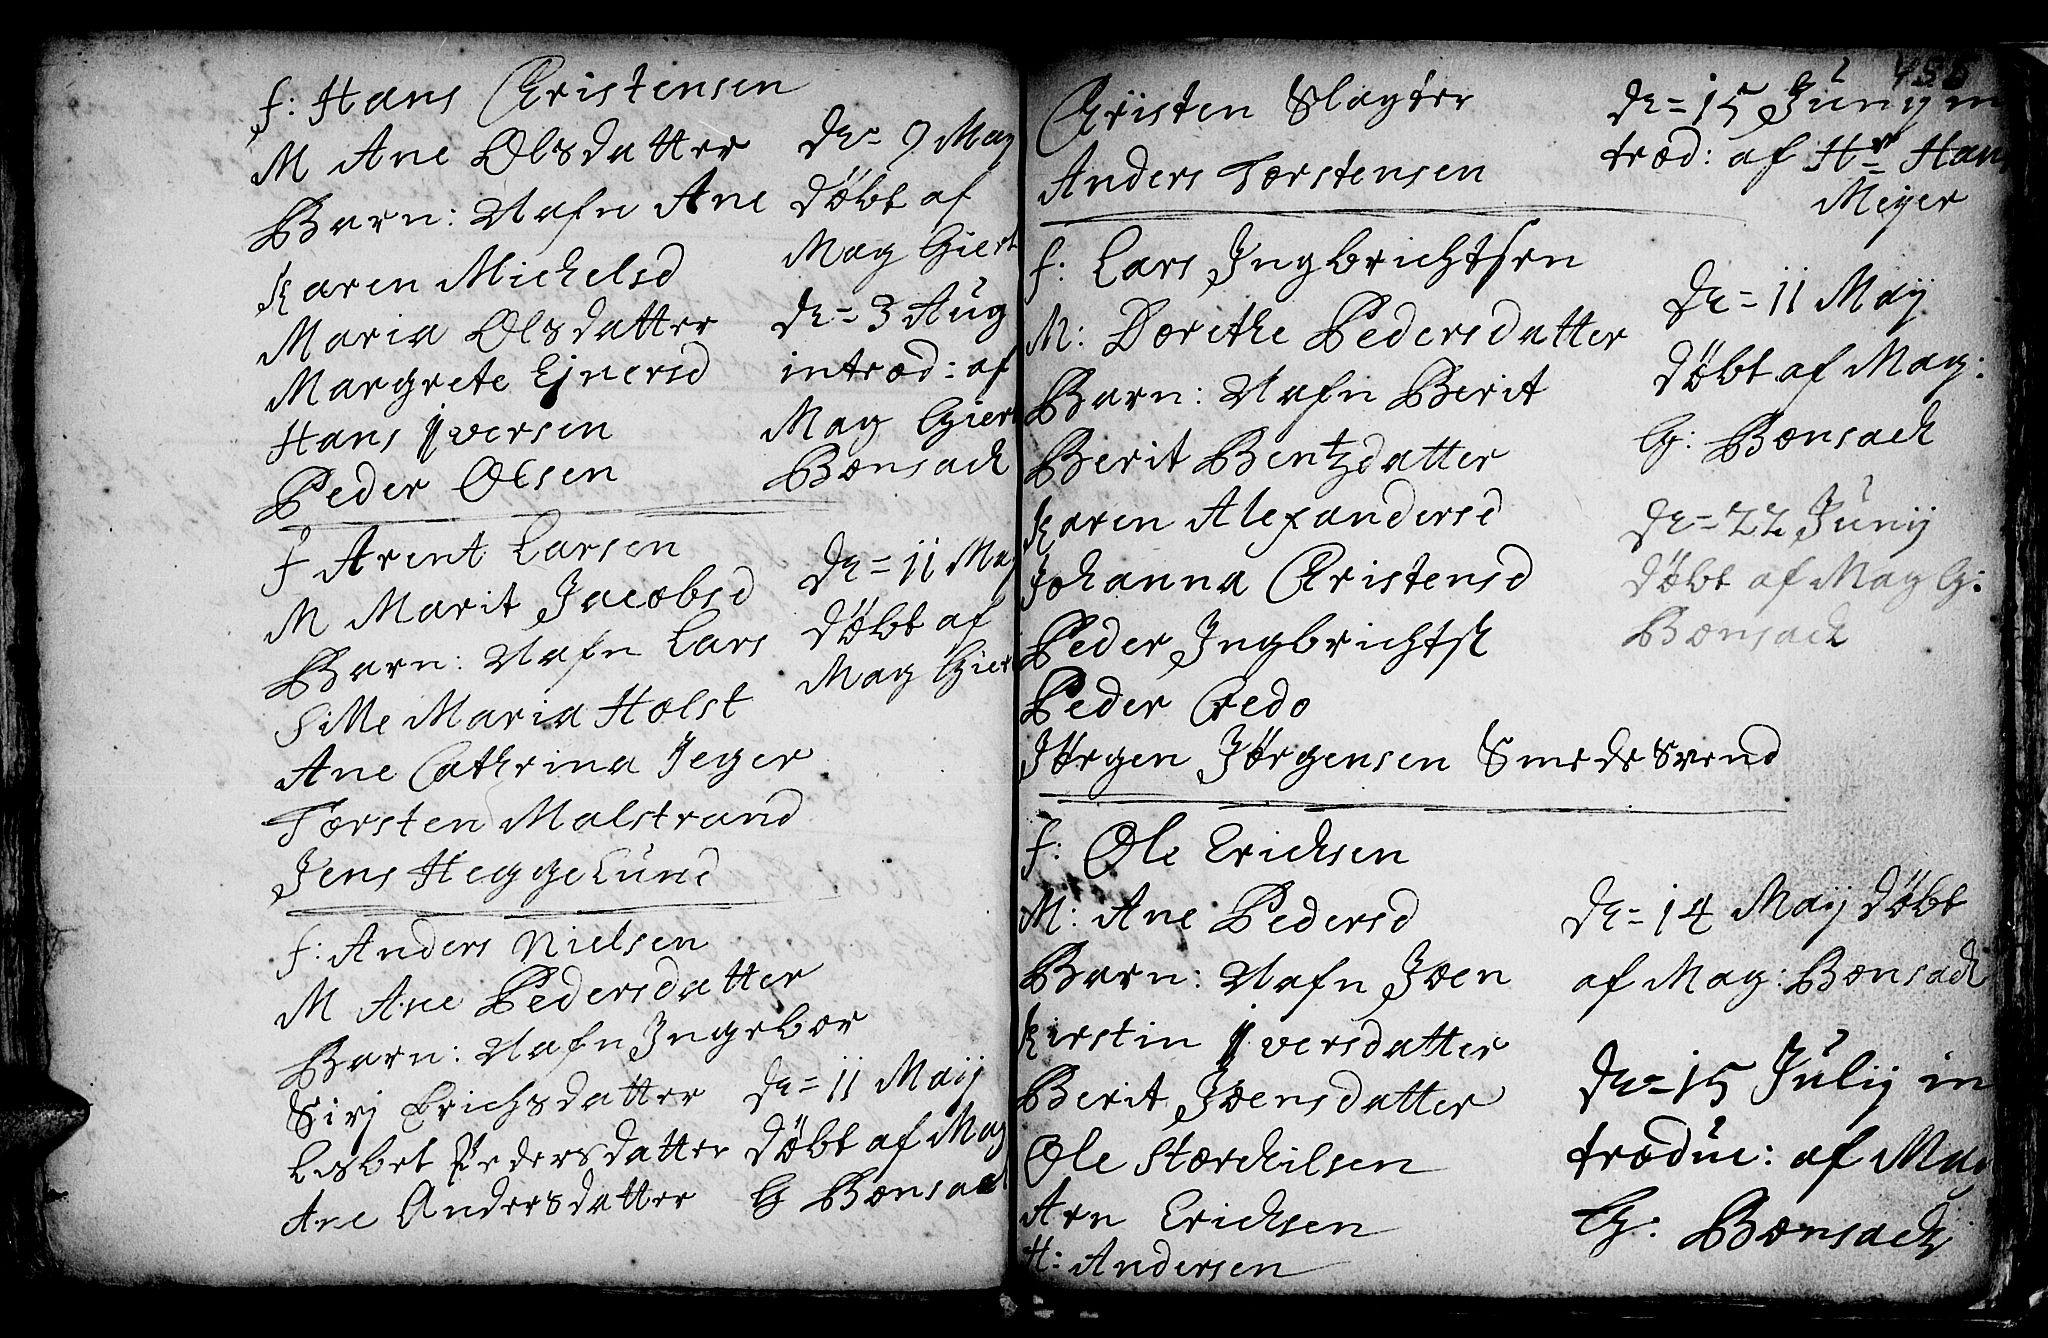 f: Hans Christensen
M Ane Olsdatter
Barn: Nafn Ane
Karen Michelsd
Maria Olsdatter
Margrete Ejnersd
Hans Iversen
Peder Olsen
de= 9 May
döbt af
Mag Giert
de= 3 Aug
introd: af
Mag Giert
Bonsach
f Arent Larsen
M Marit Jacobsd
Barn: Nafn Lars
Sille Maria Holst
Ane Cathrina Jeger
Torsten Malstrand
Jens Heggelund
de= 11 May
döbt af
Mag Giert
f: Anders Nielsen
M Ane Pedersdatter
Barn: Nafn Ingebor
Sirj Erichsdatter
Lisbet Pedersdatter
Ane Andersdatter
de= 11 Maij
döbt af Mag
G Bonsach
455
Christen Slagter
Anders Torstensen
de= 15 Junij in
trod: af Hr Hans
Meyer
f: Lars Ingbrichtsen
M: Dorethe Pedersdatter
Barn: Nafn Berit
Berit Bentzdatter
Karen Alexandersd
Johanna Christensd
Peder Ingbrichts
Peder Credo
Jörgen Jörgensen Smede Svend
de= 11 Maij
döbt af Mag:
G: Bonsach
de= 22 Junij
döbt af Mag G:
Bonsach
f: Ole Erichsen
M: Ane Pedersd
Barn: Nafn Joen
Kirstin Iversdatter
Berit Joensdatter
Ole Storchilsen
Arn Erichsen
H: Andersen
de= 14 Maij döbt
af Mag: Bonsach
de= 15 Julij in
troduc: af Mag
G: Bonsach